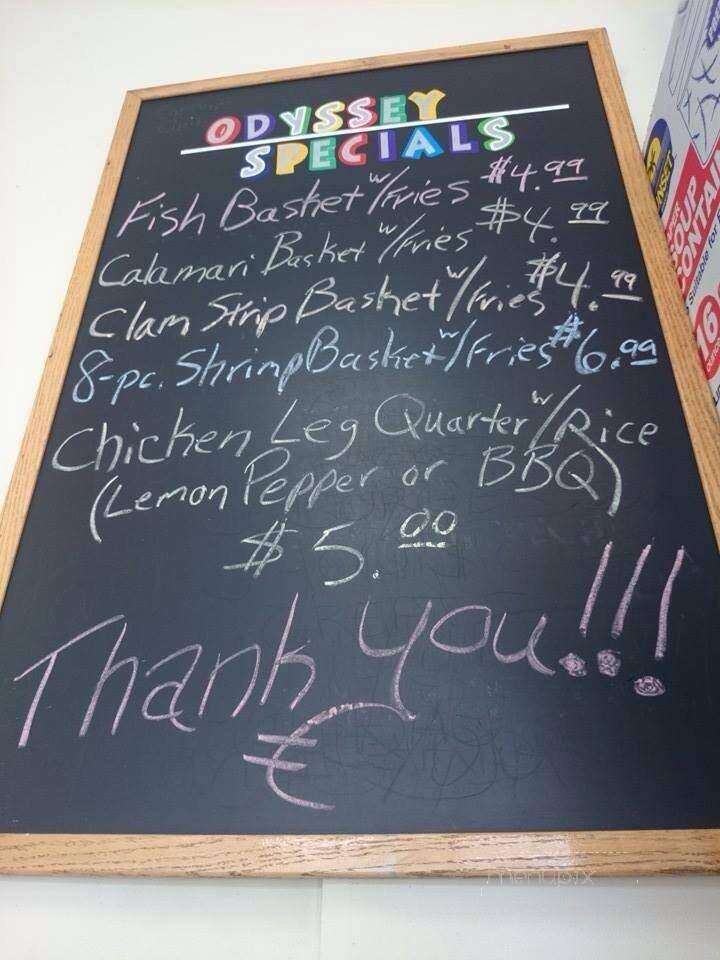 ODYSSEY
SPECIALS
Fish Basket w/Fries $4.99
Calamari Basket w/Fries $4.99
Clam Strip Basket w/Fries $4.99
8-pc. Shrimp Basket w/Fries $6.99
Chicken Leg Quarter w/Rice
(Lemon Pepper or BBQ)
$5.00
Thank you!!!
SOUP
CONTAI
Suitable for
16